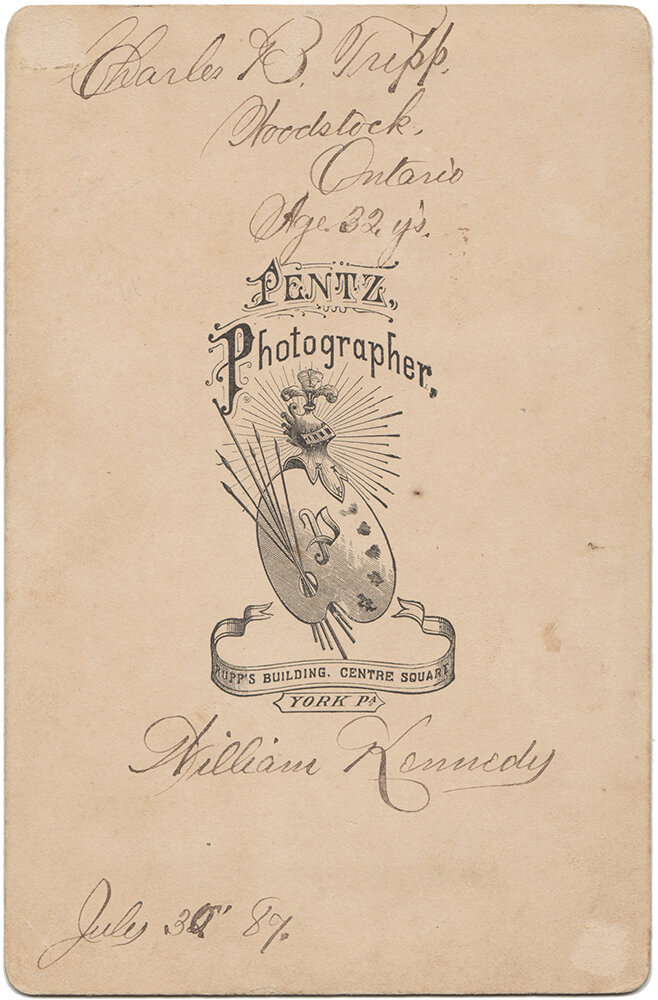 Charles B. Tripp.
Woodstock.
Ontario
Age 32 y's.
PENTZ,
Photographer,
P
RUPP'S BUILDING. CENTRE SQUARE
YORK PA
William Kennedy
July 30" 87.